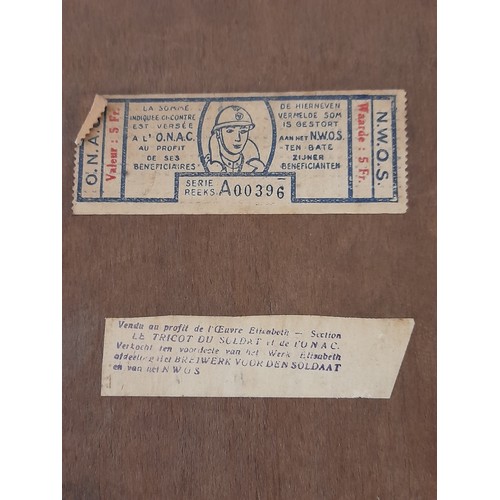 O.N.A
Valeur : 5 Fr.
LA SOMME
INDIQUEE CI-CONTRE
EST VERSÉE
A L'O.N.A.C.
AU PROFIT
DE SES
BENEFICIAIRES
DE HIERNEVEN
VERMELDE SOM
IS GESTORT
AAN HET N.W.O.S.
TEN BATE
ZIJNER
BENEFICIANTEN
SERIE
REEKS A00396
Waarde : 5 Fr.
N.W.O.S.
Vendu au profit de l'Œuvre Elisabeth — Section
LE TRICOT DU SOLDAT et de l'O.N.A.C.
Verkocht ten voordeele van het Werk Elisabeth
afdeeling Het BREIWERK VOOR DEN SOLDAAT
en van het N.W.O.S.